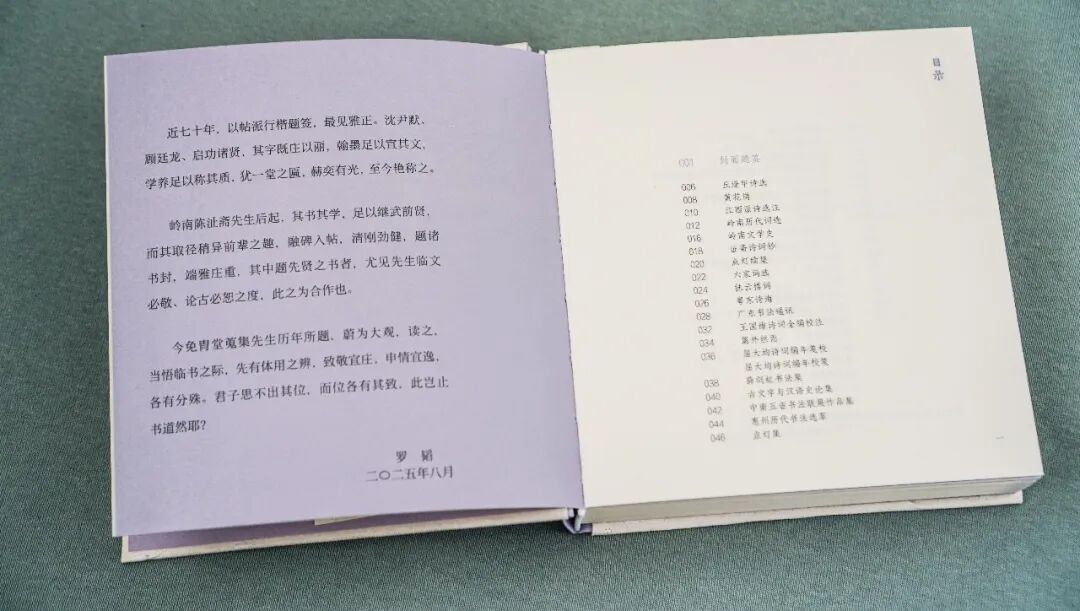 近七十年，以帖派行楷题签，最见雅正。沈尹默、
顾廷龙、启功诸贤，其字既庄以丽，翰墨足以宣其文，
学养足以称其质，犹一堂之匾，赫奕有光，至今艳称之。
岭南陈沚斋先生后起，其书其学，足以继武前贤，
而其取径稍异前辈之趣，融碑入帖，清刚劲健，题诸
书封，端雅庄重，其中题先贤之书者，尤见先生临文
必敬、论古必恕之度，此之为合作也。
今免胄堂蒐集先生历年所题，蔚为大观，读之，
当悟临书之际，先有体用之辨，致敬宜庄，申情宜逸，
各有分殊。君子思不出其位，而位各有其致，此岂止
书道然耶？
罗 韬
二〇二五年八月
目录
001 封面题签
006 丘逢甲诗选
008 黄花梅
010 江西派诗选注
012 岭南历代词选
016 岭南文学史
018 沚斋诗词钞
020 点灯续集
022 六家词选
024
026 粤东诗海
028 广东书法通讯
032 王国维诗词全编校注
034
036 屈大均诗词编年笺校
屈大均诗词编年校笺
038 书法集
040 古文字与汉语史论集
042 中南五省书法联展作品集
044 惠州历代书法选萃
046 点灯集
一